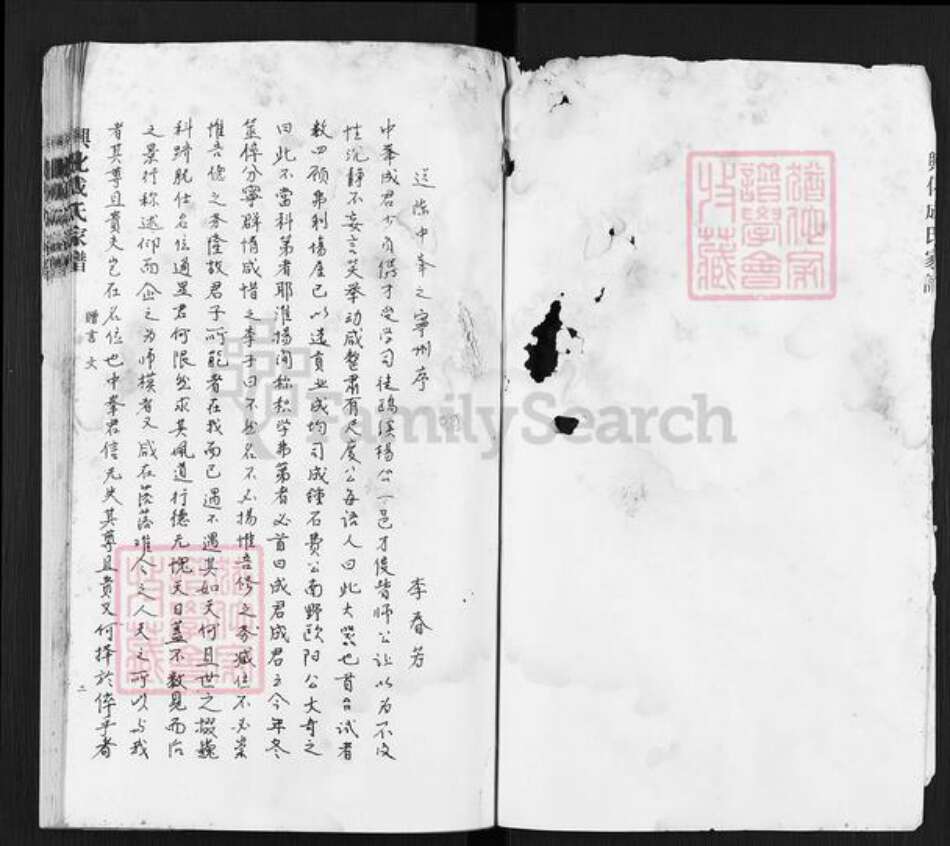 送陈中峯之寧州序
李春芳
中峯成君少負儁才受学司徒鷗溪楊公一邑才俊皆師公讓以为不及
性沉静不妄言笑举动咸整肃有尺度公每语人曰此大器也首台试者
数四顾弗利場屋已以选貢业成均司成鍾石費公南野歐阳公大奇之
曰此不當科第者耶淮揚间称积学弗第者必首曰成君成君云今年冬
筮倅分寧群情咸惜之李子曰不然名不必揚惟吾修之务臧位不必崇
惟吾德之务隆故君子所能者在我而已遇不遇其如天何且世之掇巍
科跻膴仕名位通显者何限然求其风道行德无愧天日盖不数見而后
之景行称述仰而企之为师模者又咸在落落难合之人天之所以与我
者其尊且貴夫岂在名位也中峯君信无失其尊且貴又何择於倅乎者
興化成氏家譜
贈言 文
二
譜學會
收藏
FamilySearch
興化成氏家譜